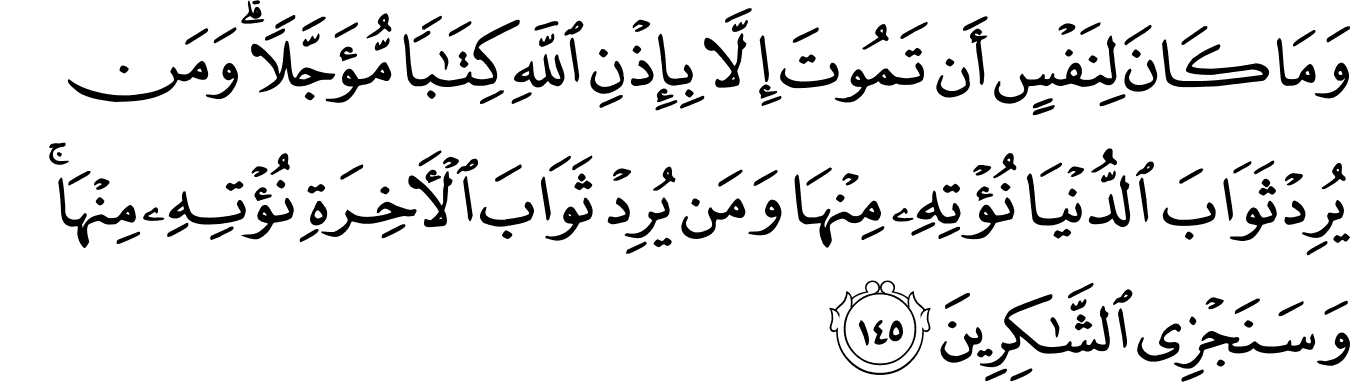 وَمَا كَانَ لِنَفْسٍ أَن تَمُوتَ إِلَّا بِإِذْنِ ٱللَّهِ كِتَٰبًا مُّؤَجَّلًا ۗ وَمَن
يُرِدْ ثَوَابَ ٱلدُّنْيَا نُؤْتِهِۦ مِنْهَا وَمَن يُرِدْ ثَوَابَ ٱلْأَخِرَةِ نُؤْتِهِۦ مِنْهَا ۚ
وَسَنَجْزِى ٱلشَّٰكِرِينَ ١٤٥